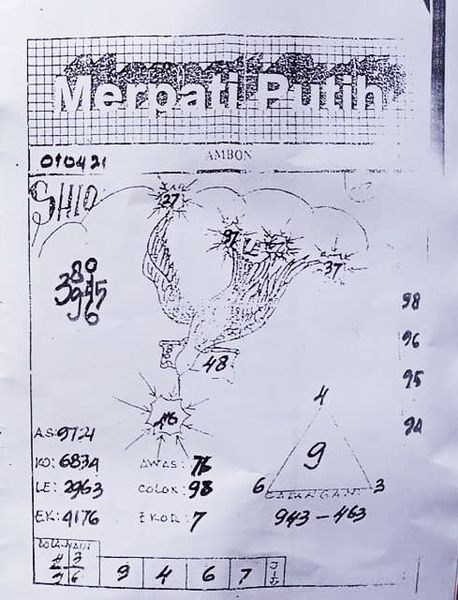 Merpati Putih
AMBON
010421
SHIO
27
97
67
37
48
46
98
96
95
94
AS: 9724
KO: 6834
LE: 2963
EK: 4176
AWAS: 76
COLOK: 98
EKOR: 7
4
9
6
3
943-463
4 3
3 6
9 4 6 7